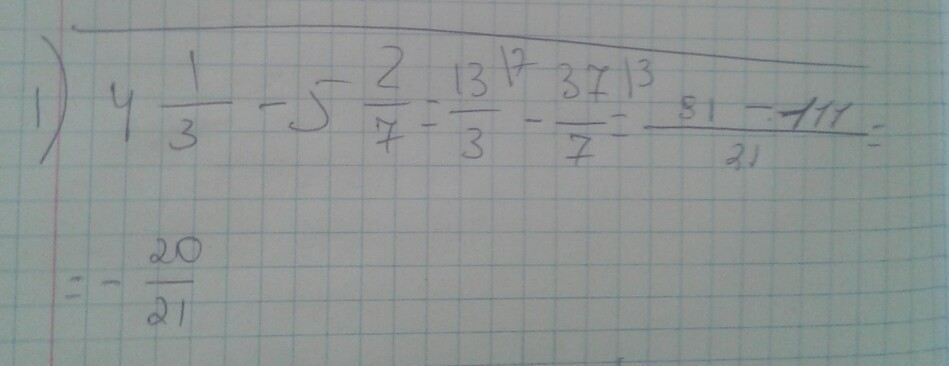 1) 4 1/3 - 5 2/7 = 13/3 \7 - 37/7 \3 = 91 - 111 / 21 =
= - 20/21